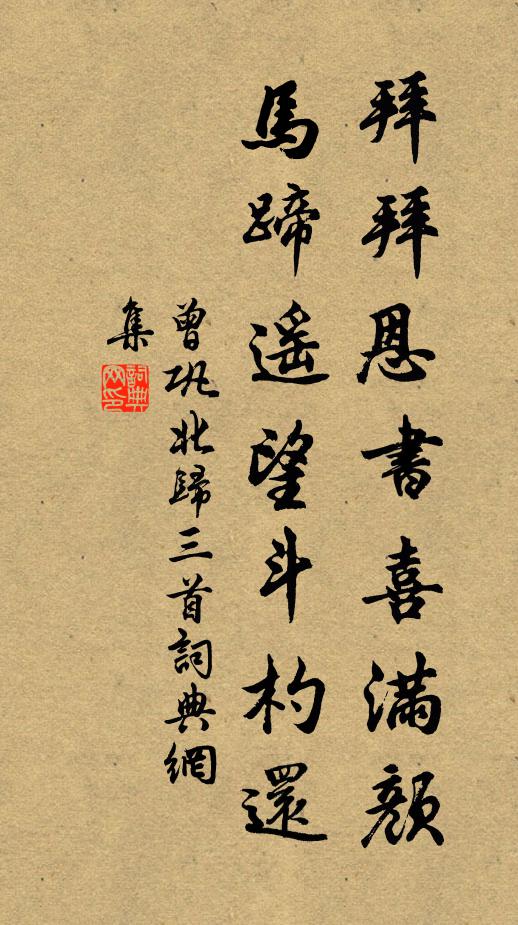 拜拜恩書喜滿顏
馬蹄遥望斗杓還
曾巩北歸三首詞典網
集
詞典
网印